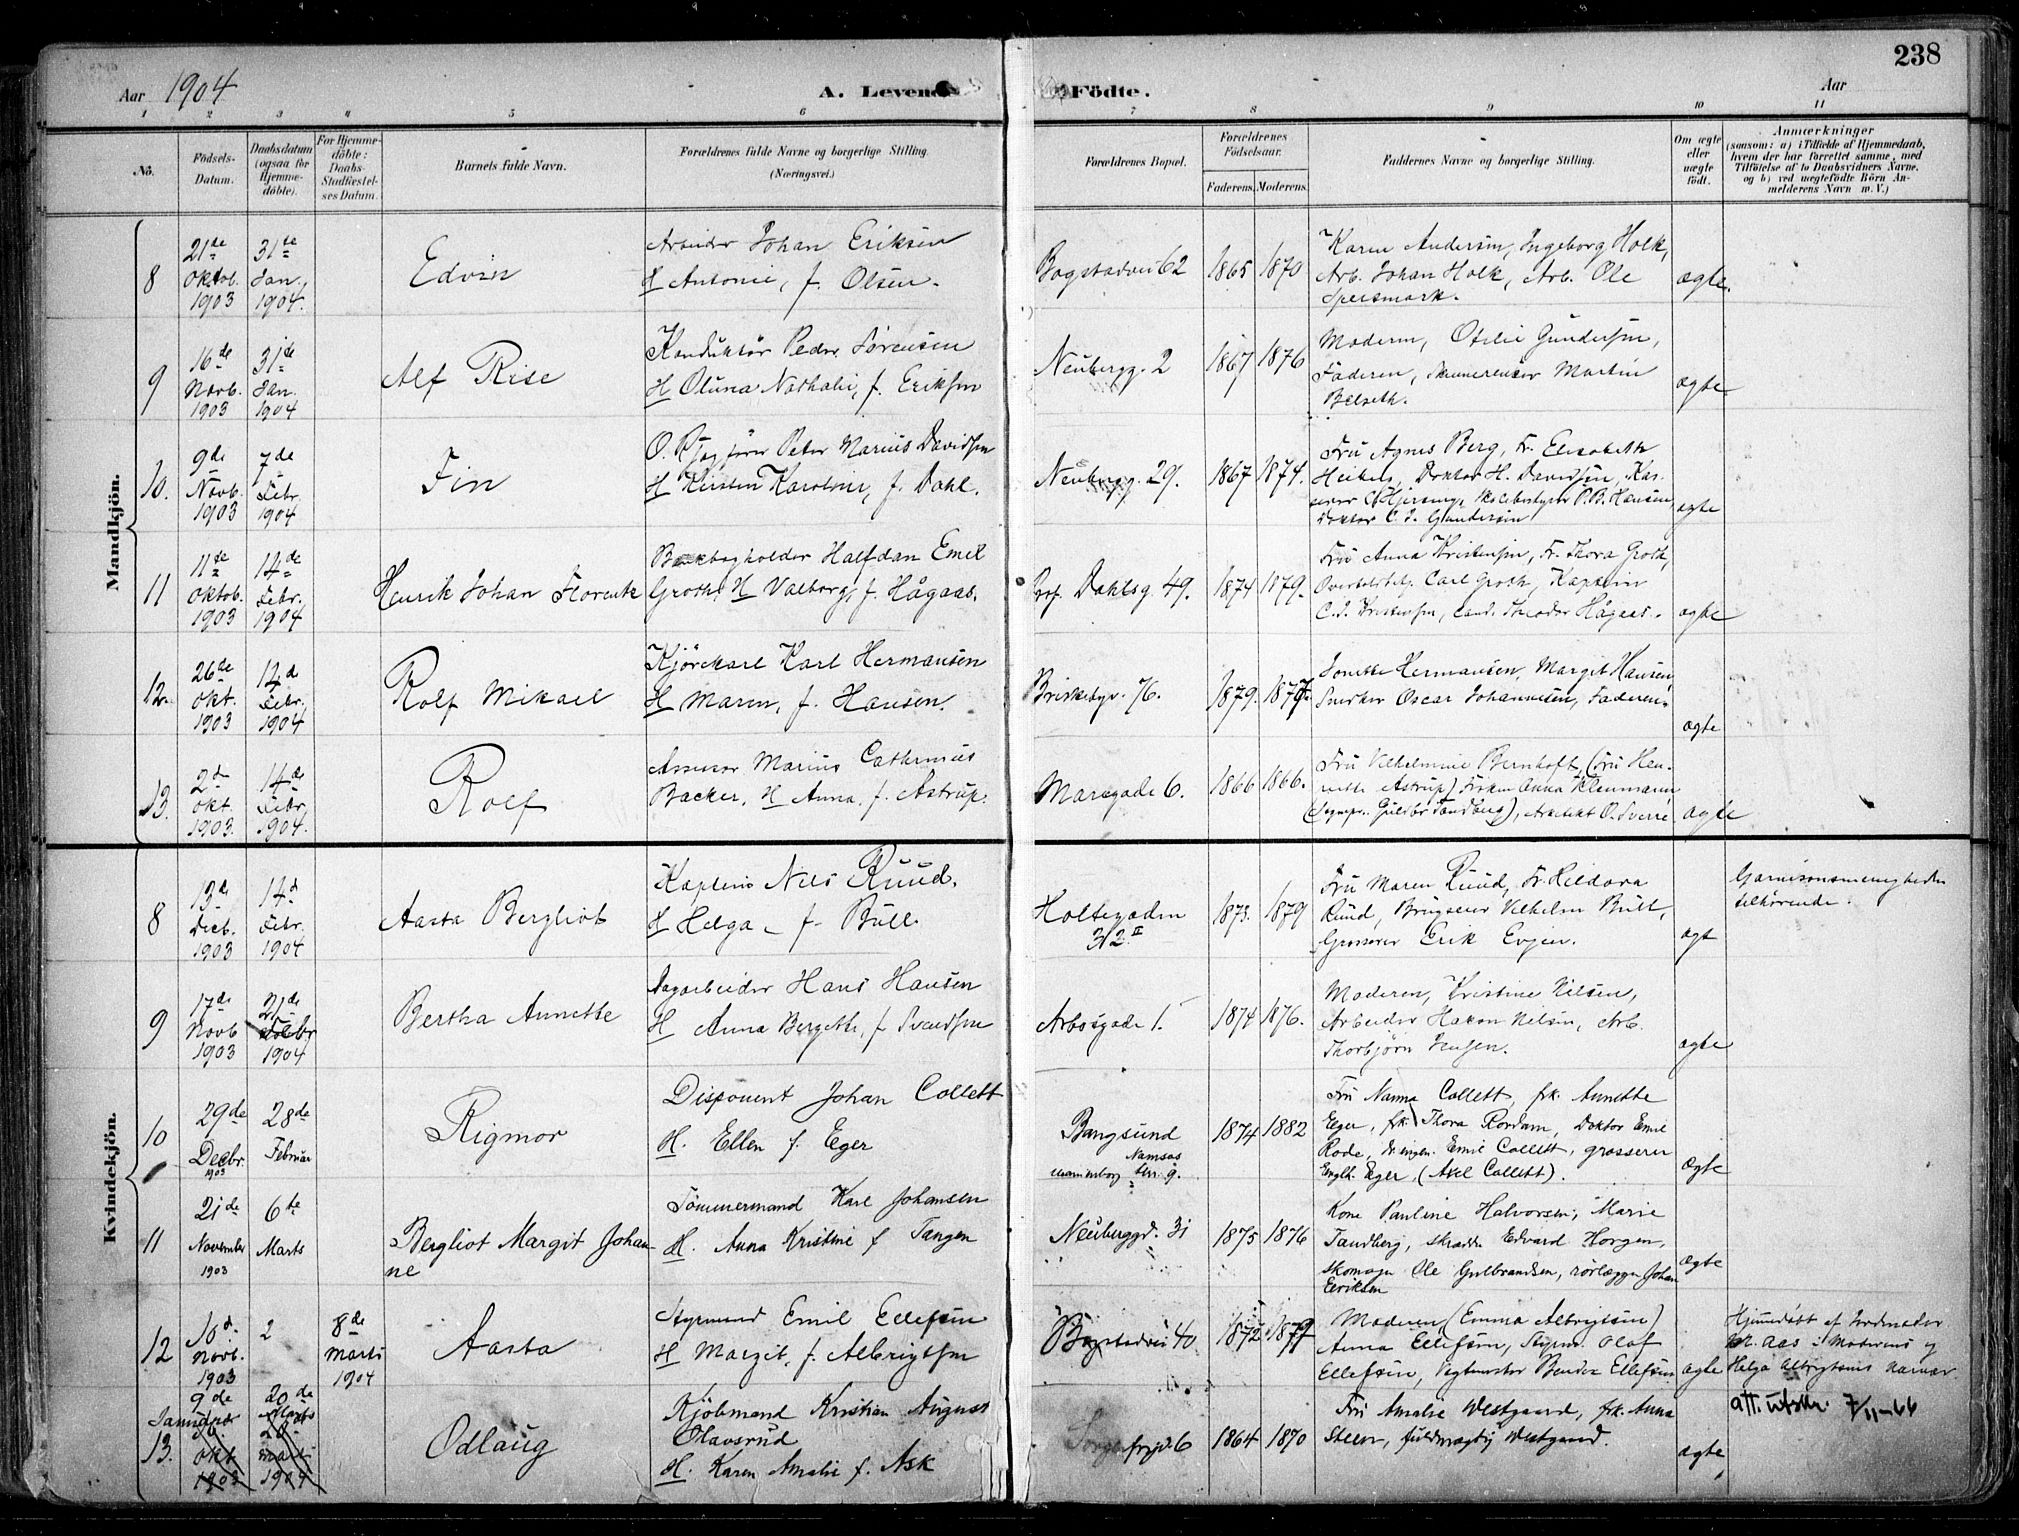 238
Aar 1904
A. Levende Födte.
Aar
1 2 3 4 5 6 7 8 9 10 11
No.
Födsels-Datum.
Daabsdatum (ogsaa for Hjemme-döbte).
For Hjemme-döbte: Daabs-Stadfæstel-ses Datum.
Barnets fulde Navn.
Forældrenes fulde Navne og borgerlige Stilling.
(Næringsvei.)
Forældrenes Bopæl.
Forældrenes Födselsaar.
Faderens. Moderens.
Faddernes Navne og borgerlige Stilling.
Om ægte eller uægte födt.
Anmærkninger
(saasom: a) i Tilfælde af Hjemmedaab,
hvem der har forrettet samme, med
Tilföielse af to Daabsvidners Navne.
og b) ved uægtefödte Börn An-
melderens Navn m. V.)
Mandkjön.
8
21de Oktob. 1903
31te Jan. 1904.
Edvin
Arbeider Johan Eriksen
H Antonie, f. Olsen.
Bogstadvei 62
1865 1870
Karen Andersen, Ingeborg Holk,
Arb. Johan Holk, Arb. Ole
Spersmark.
ægte.
9
16de Novb. 1903
31te Jan. 1904
Alf Rise
Konduktör Peder Sörensen
H Oluna Nathalie, f. Eriksen
Neubergg. 2
1867 1876
Moderen, Otilie Gundersen,
Faderen, Martin
Belseth.
ægte
10.
9de Novb. 1903
7de Febr. 1904
Fin
O. R. Peter Marius Davidsen
H Kirsten Karoline, f. Dahl.
Neubergg. 29.
1867 1874.
Fru Agnes Berg, Fr. Elisabeth
Doktor H. Davidsen, Kas-
serer C. P. B. Hansen,
Doktor C. J. Gundersen
ægte
11
11te Oktob. 1903
14de Febr. 1904
Henrik Johan Florentz
Halfdan Emil
Groth, H Valborg, f. Hågaas.
Prof. Dahlsg. 49.
1874 1879.
Fru Anna Kristensen, Fr. Thora Groth,
Carl Groth, Kaptein
C. J. Kristensen, cand. Theodor Hågaas.
ægte
12.
26de Okt. 1903
14d Febr. 1904
Rolf Mikael
Kjörekarl Karl Hermansen
H Maren, f. Hansen.
Briskebyv. 76.
1879. 1877.
Hermansen, Margit Hansen,
Snedker Oscar Johannesen, Faderen.
ægte
13.
2d Okt. 1903.
14de Febr. 1904.
Rolf
Assessor Marius Cathrinus
Backer, H Anna, f. Astrup.
Marsgade 6.
1866 1866.
Fru Vilhelmine Bernhoft, (Fru Hen-
riette Astrup) Fröken Anna Klenmann
Arkitekt O. Sverre
ægte
Kvindekjön.
8
13de Decb. 1903
14d Febr. 1904
Aasta Bergliot
Kaptein Nils Ruud.
H Helga, f. Bull.
Holtegaden 32 II
1873. 1879
Fru Maren Ruud, Fr. Hildora
Ruud, Brugseier Vilhelm Bull,
Grosserer Erik Evjen.
ægt
Garnisonsmenigheden
tilhörende.
9
17de Novb 1903
21de Febr 1904
Bertha Annette
Sagarbeider Hans Hansen
H Anna Bergette, f Svendsen
Arbosgade 1.
1874 1876.
Moderen, Kristine Nilsen,
Arbeider Hakon Nilsen, Arb.
Thorbjörn Jensen.
ægte
10
29de Decbr. 1903
28de Februar
Rigmor
Disponent Johan Collett
H. Ellen f. Eger
Bangsund
Namsos
1874 1882
Fru Nanna Collett, frk. Annette
Eger, frk. Thora Rordam, Doktor Emil
Rode, Emil Collett, grosserer
Eger, (Axel Collett).
ægte
11
21de November 1903
6te Marts
Bergliot Margit Johan
ne
Tömmermand Karl Johansen
H. Anna Kristine f Tangen
Neuberggd. 31
1875 1876
Kone Pauline Halvorsen, Marie
Tandberg, skrædder Edvard Horgen,
skomager Ole Gulbrandsen, rörlægger Johan
Eriksen
ægte
12
10d. Novb. 1903
2
8de Marts 1904
Aasta
Styrmand Emil Ellefsen
H Margit, f. Albrigtsen
Bogstadvei 40.
1872 1879
Moderen (Emma Albrigtsen)
Anna Ellefsen, Styrm. Olaf
Ellefsen, Ellefsen
ægte
Hjemmedöbt af Jordmoder
Aas i Moderens og
Helga Albrigtsens nærvær.
13.
9de Januar
Okt 1903
20de Marts
Marts 1904
Odlaug
Kjöbmand Kristian August
Olavsrud
H. Karen Amalie f. Ask
Sorgenfrigd. 6
1864 1870
Fru Amalie Westgaard, frk. Anna
Steen, fuldmægtig Westgaard.
ægte
att. utstr. 7/11-66